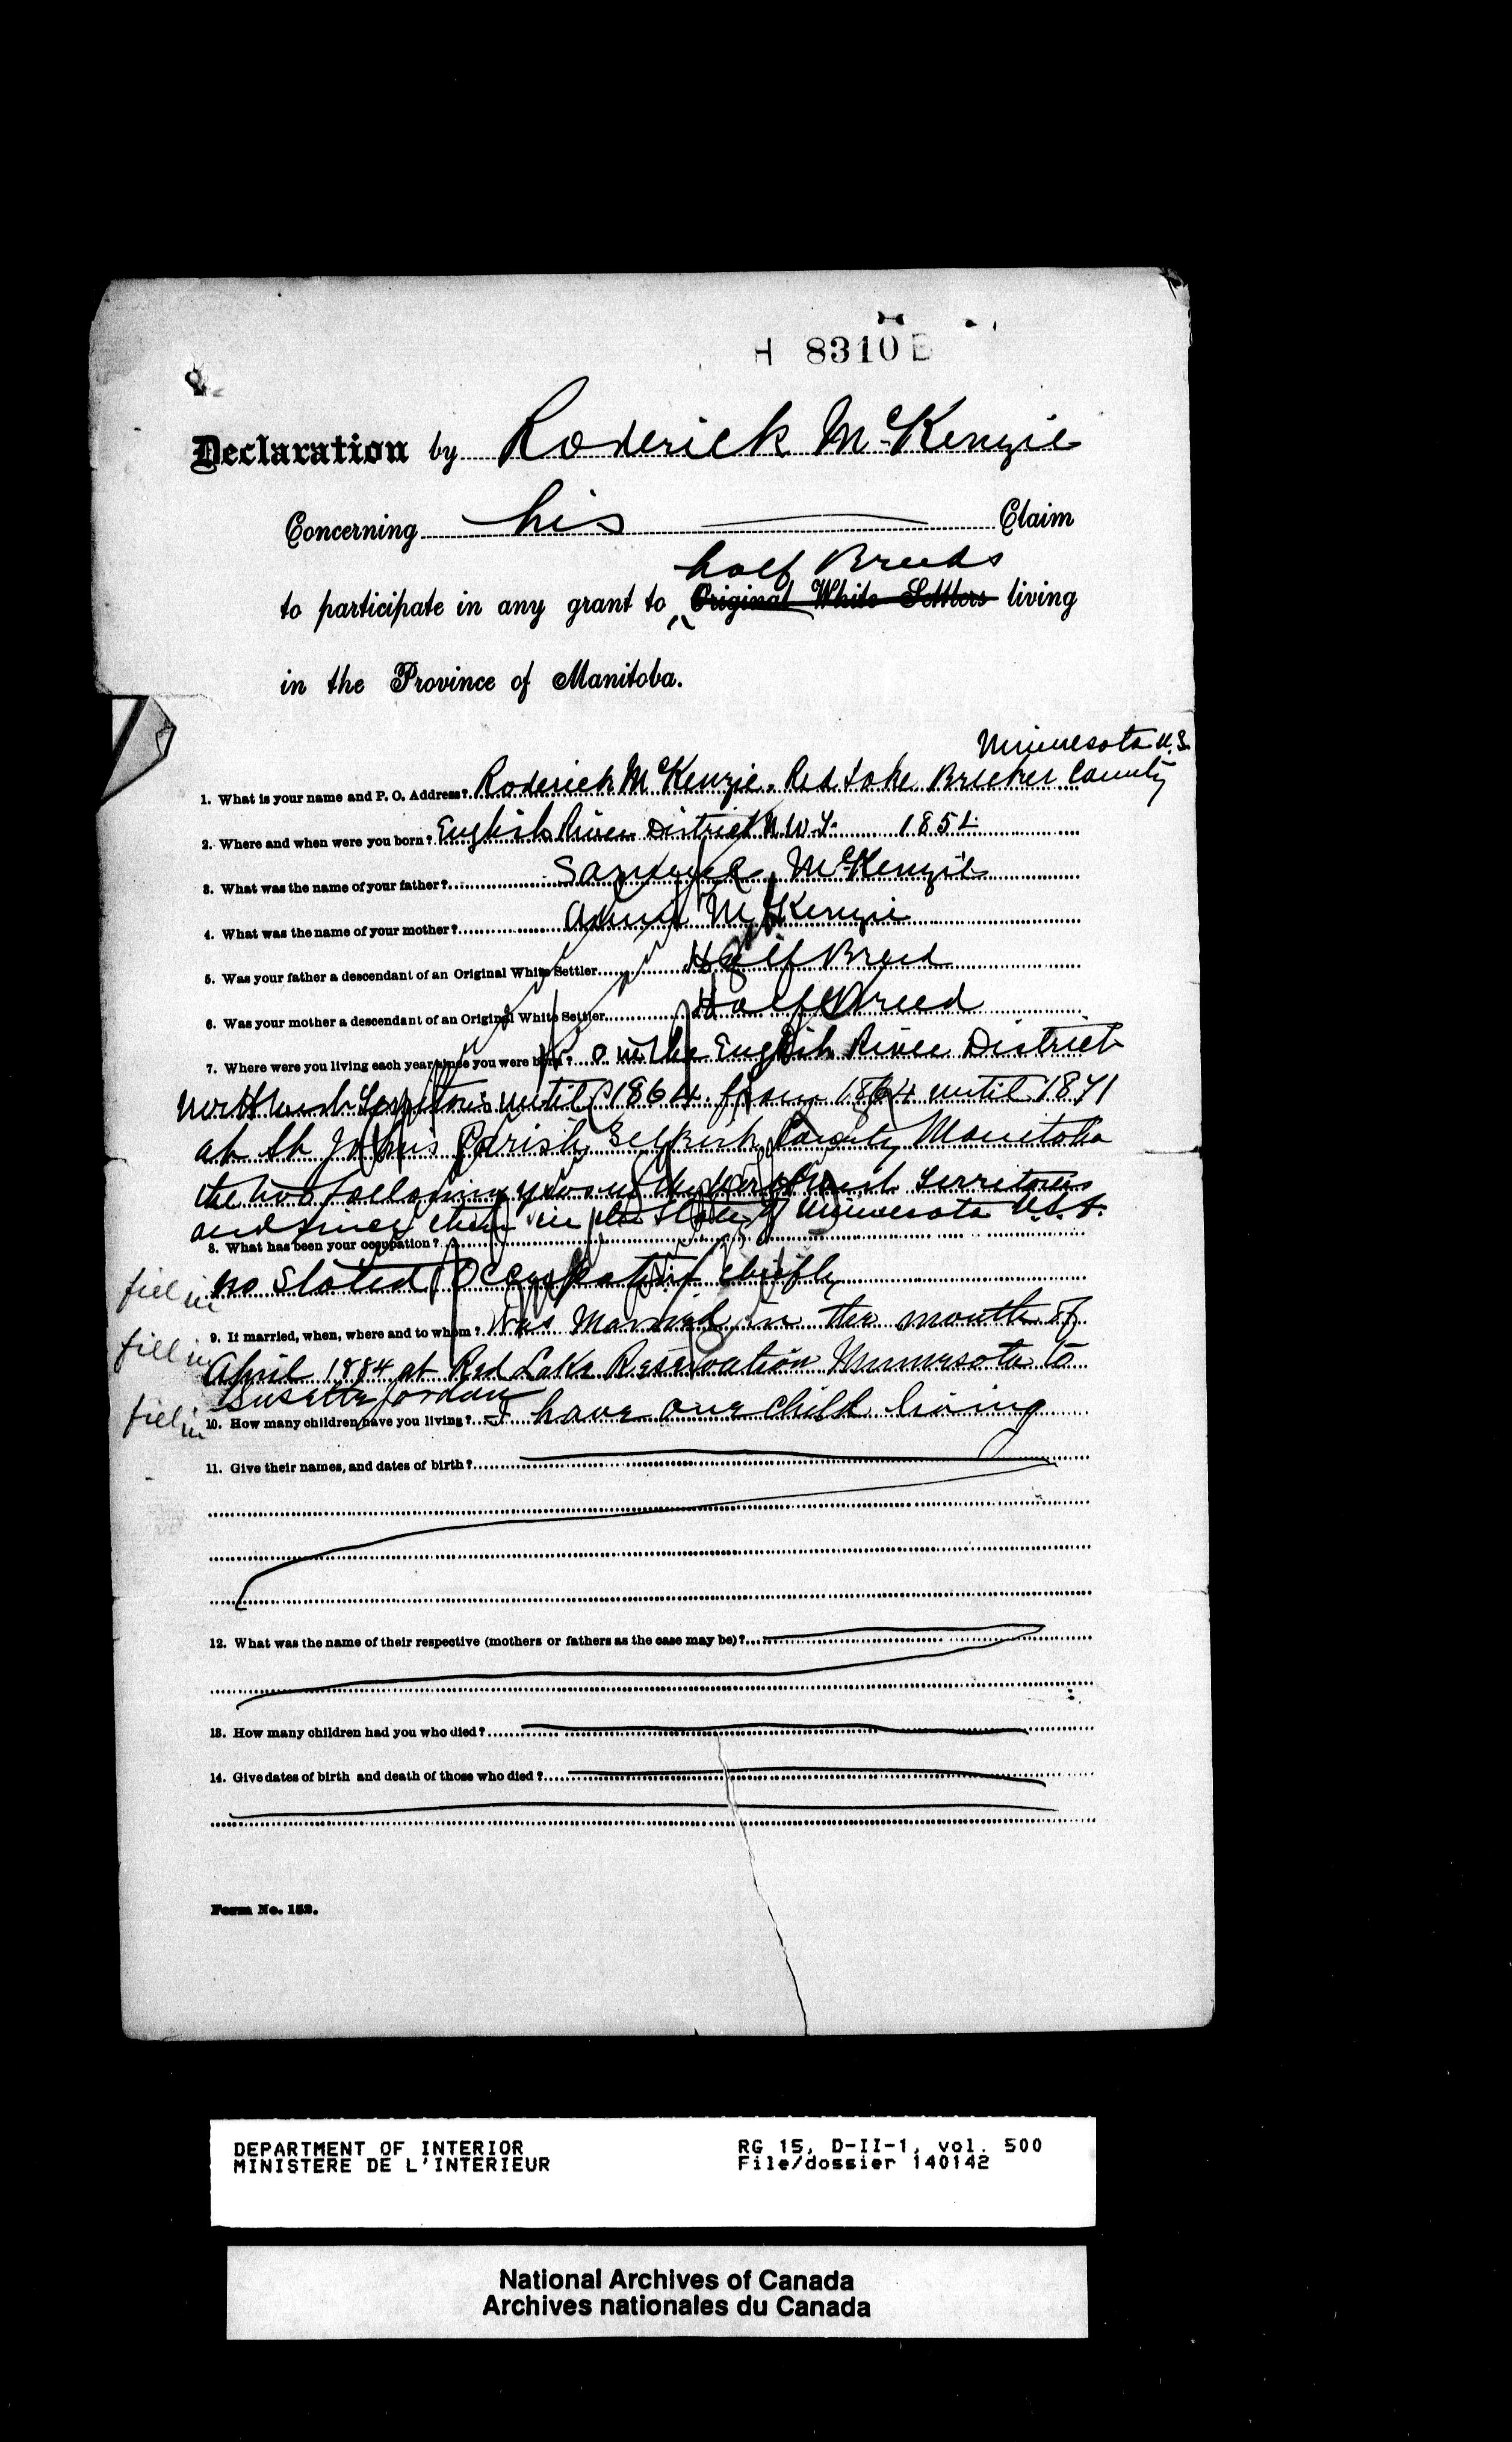 H 8310 B
Declaration by Roderick McKenzie
Concerning his Claim
half Breeds
to participate in any grant to Original White Settlers living
in the Province of Manitoba.
Minnesota U.S.
1. What is your name and P. O. Address? Roderick McKenzie. Red Lake County
2. Where and when were you born? English River District N.W.T. 185
3. What was the name of your father? McKenzie
4. What was the name of your mother? McKenzie
5. Was your father a descendant of an Original White Settler Half Breed
6. Was your mother a descendant of an Original White Settler Half Breed
7. Where were you living each year since you were born? on the English River District
North West Territories until 1864. from 1864 until 1871
at St Johns Parish Selkirk County Manitoba
the two following years in the North West Territories
and since then in the State of Minnesota U.S.
8. What has been your occupation?
fill in no stated Occupation chiefly
9. If married, when, where and to whom? Was Married in the month of
fill in April 1884 at Red Lake Reservation Minnesota to
Susette Jordan
fill in 10. How many children have you living? I have one child living
11. Give their names, and dates of birth?
12. What was the name of their respective (mothers or fathers as the case may be)?
13. How many children had you who died?
14. Give dates of birth and death of those who died?
Form No. 152.
DEPARTMENT OF INTERIOR RG 15, D-II-1, vol. 500
MINISTERE DE L'INTERIEUR File/dossier 140142
National Archives of Canada
Archives nationales du Canada